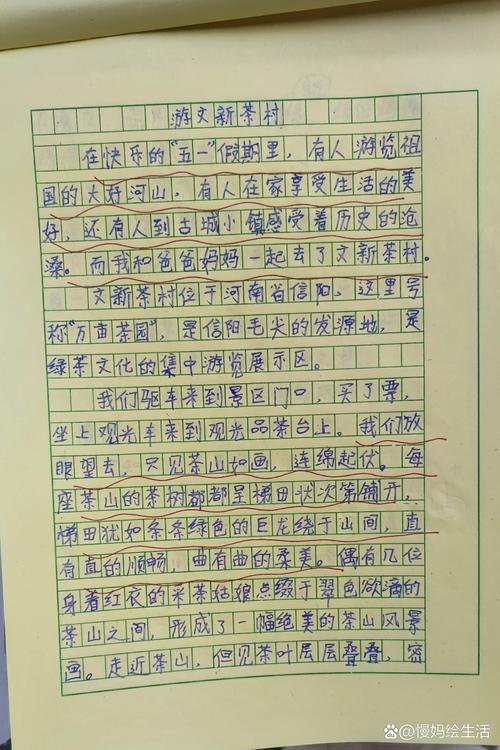 游文新茶村
在快乐的"五一"假期里，有人游览祖
国的大好河山，有人在家享受生活的美
好，还有人到古城小镇感受着历史的沧
桑。而我和爸爸妈妈一起去了文新茶村。
文新茶村位于河南省信阳，这里号
称"万亩茶园"，是信阳毛尖的发源地，是
绿茶文化的集中游览展示区。
我们驱车来到景区门口，买了票，
坐上观光车来到观光品茶台上。我们放
眼望去，只见茶山如画，连绵起伏。每
座茶山的茶树都都呈梯田状次第铺开，
梯田犹如条条绿色的巨龙绕于山间，直
有直的顺畅，曲有曲的柔美。偶有几位
身着红衣的采茶姑娘点缀于翠色欲滴的
茶山之间，形成了一幅绝美的茶山风景
画。走近茶山，但见茶叶层层叠叠，密
@慢妈绘生活